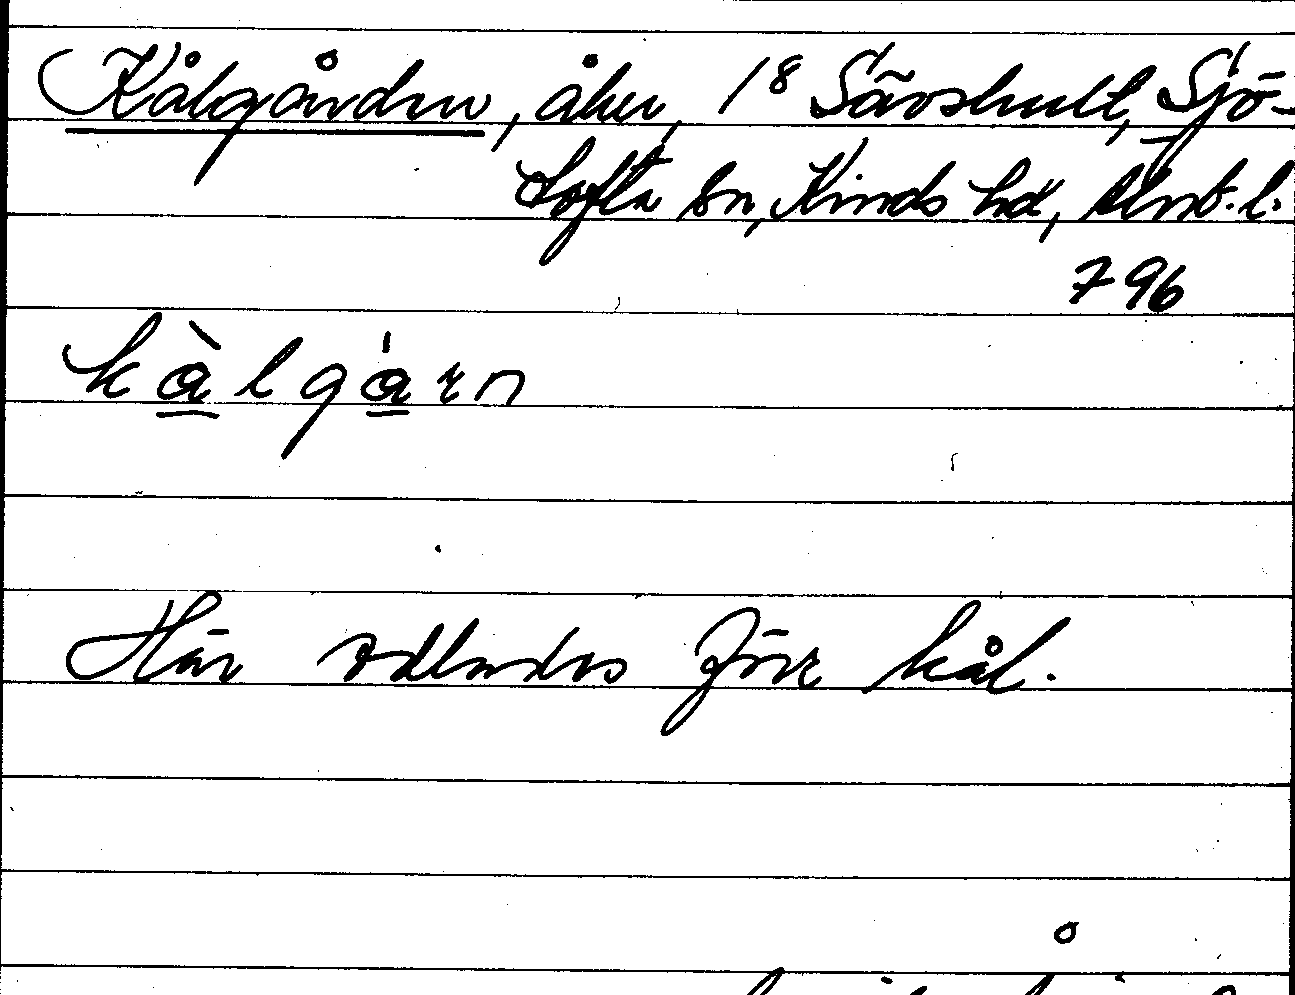 Kålgården, åker, 1⁸ Sävshult, Sjö-
tofta sn, Kinds hd, Älvsb. l.
796
kàlgárn
Här odlades förr kål.